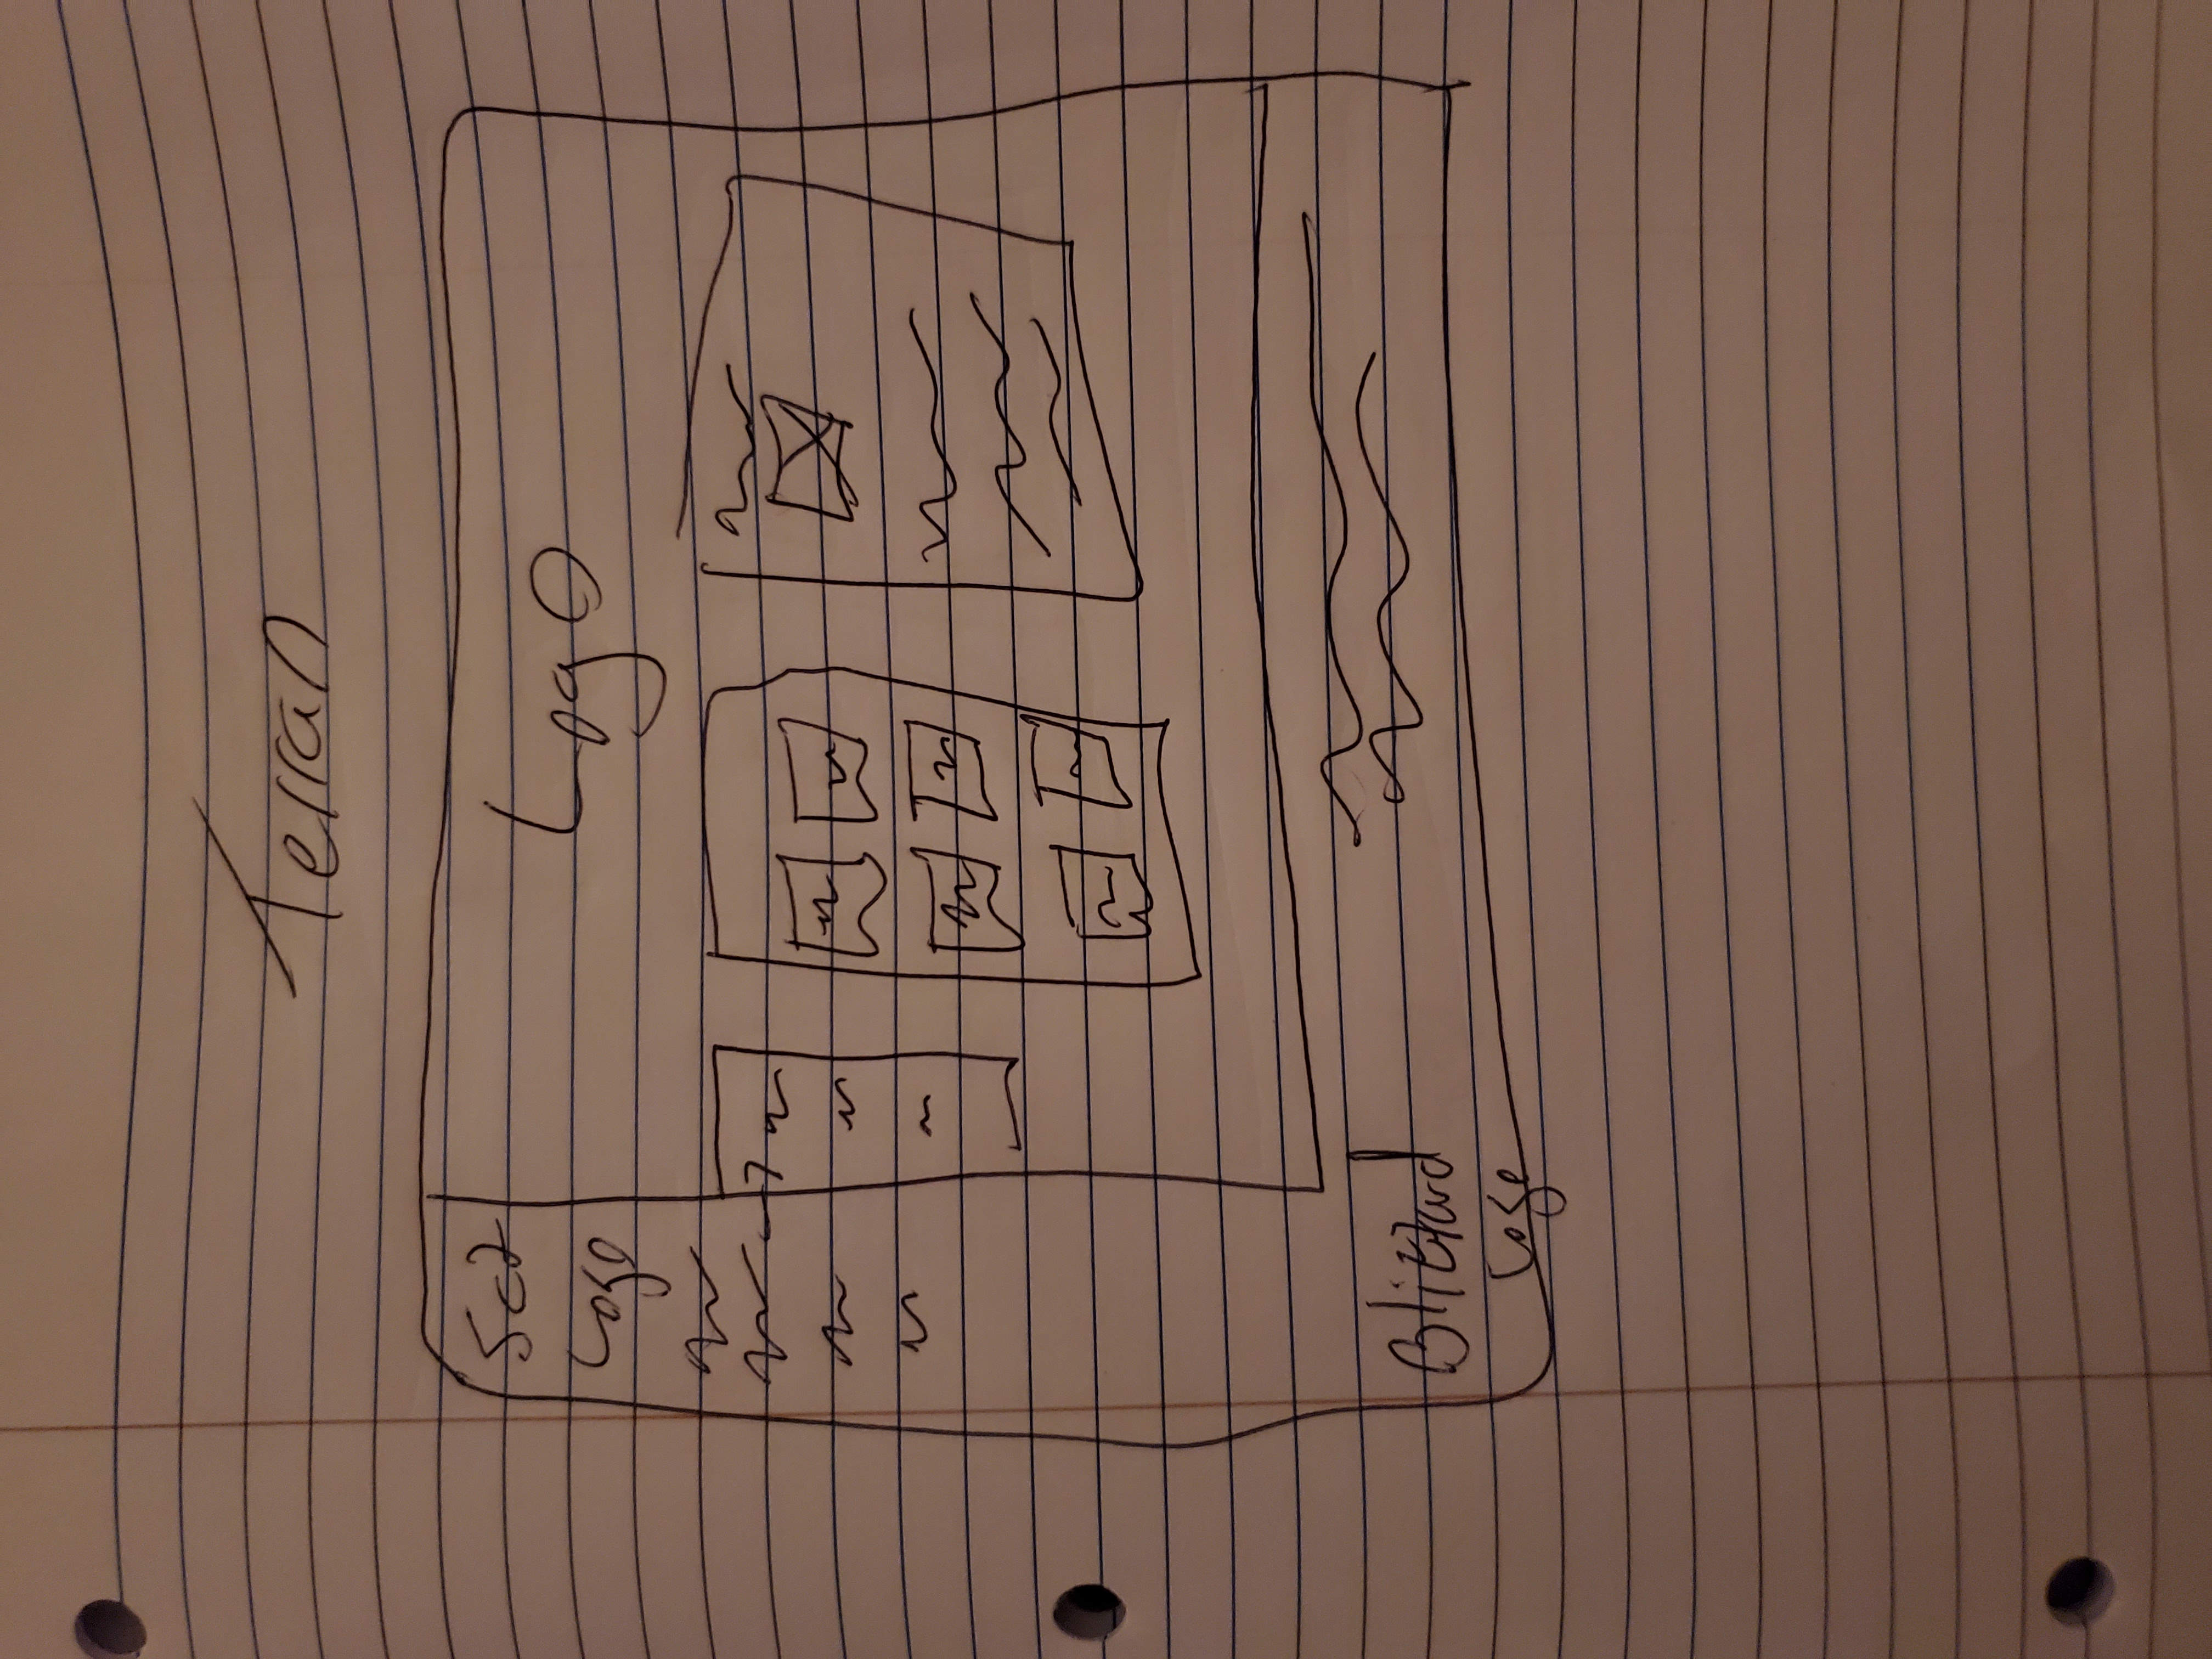 Terran
Sc2
Logo
Logo
Blizzard
Logo